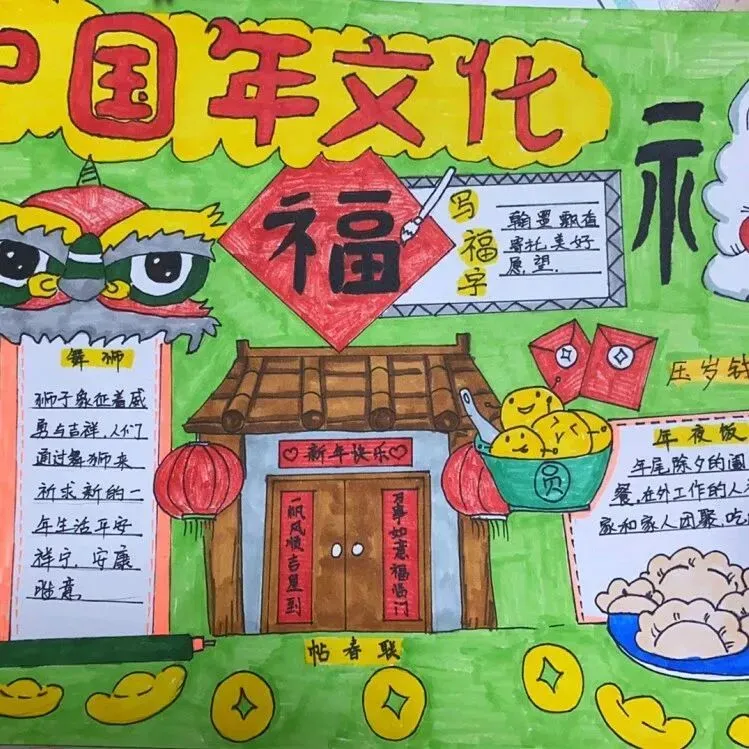 中国年文化
福
写福字
翰墨飘香
寄托美好
愿望.
舞狮
狮子象征着威
勇与吉祥,人们
通过舞狮来
祈求新的一
年生活平安
祥宁,安康
意.
新年快乐
一帆风顺吉星到
万事如意福临门
帖春联
压岁钱
圆
年夜饭
年尾除夕的阖
餐,在外工作的人
家和家人团聚,吃